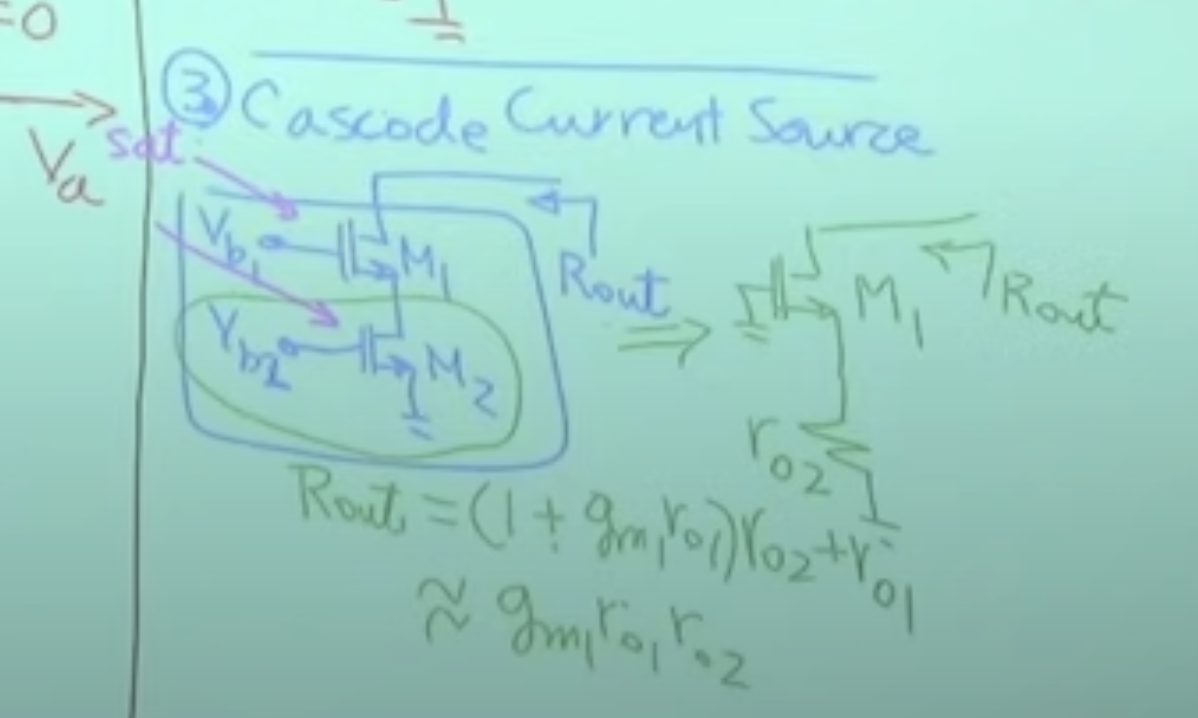 =0
Va
③ Cascode Current Source
sat.
Vb1
M1
Rout
Vb2
M2
⇒
M1
Rout
ro2
Rout = (1 + gm1ro1)ro2 + ro1
≈ gm1ro1ro2